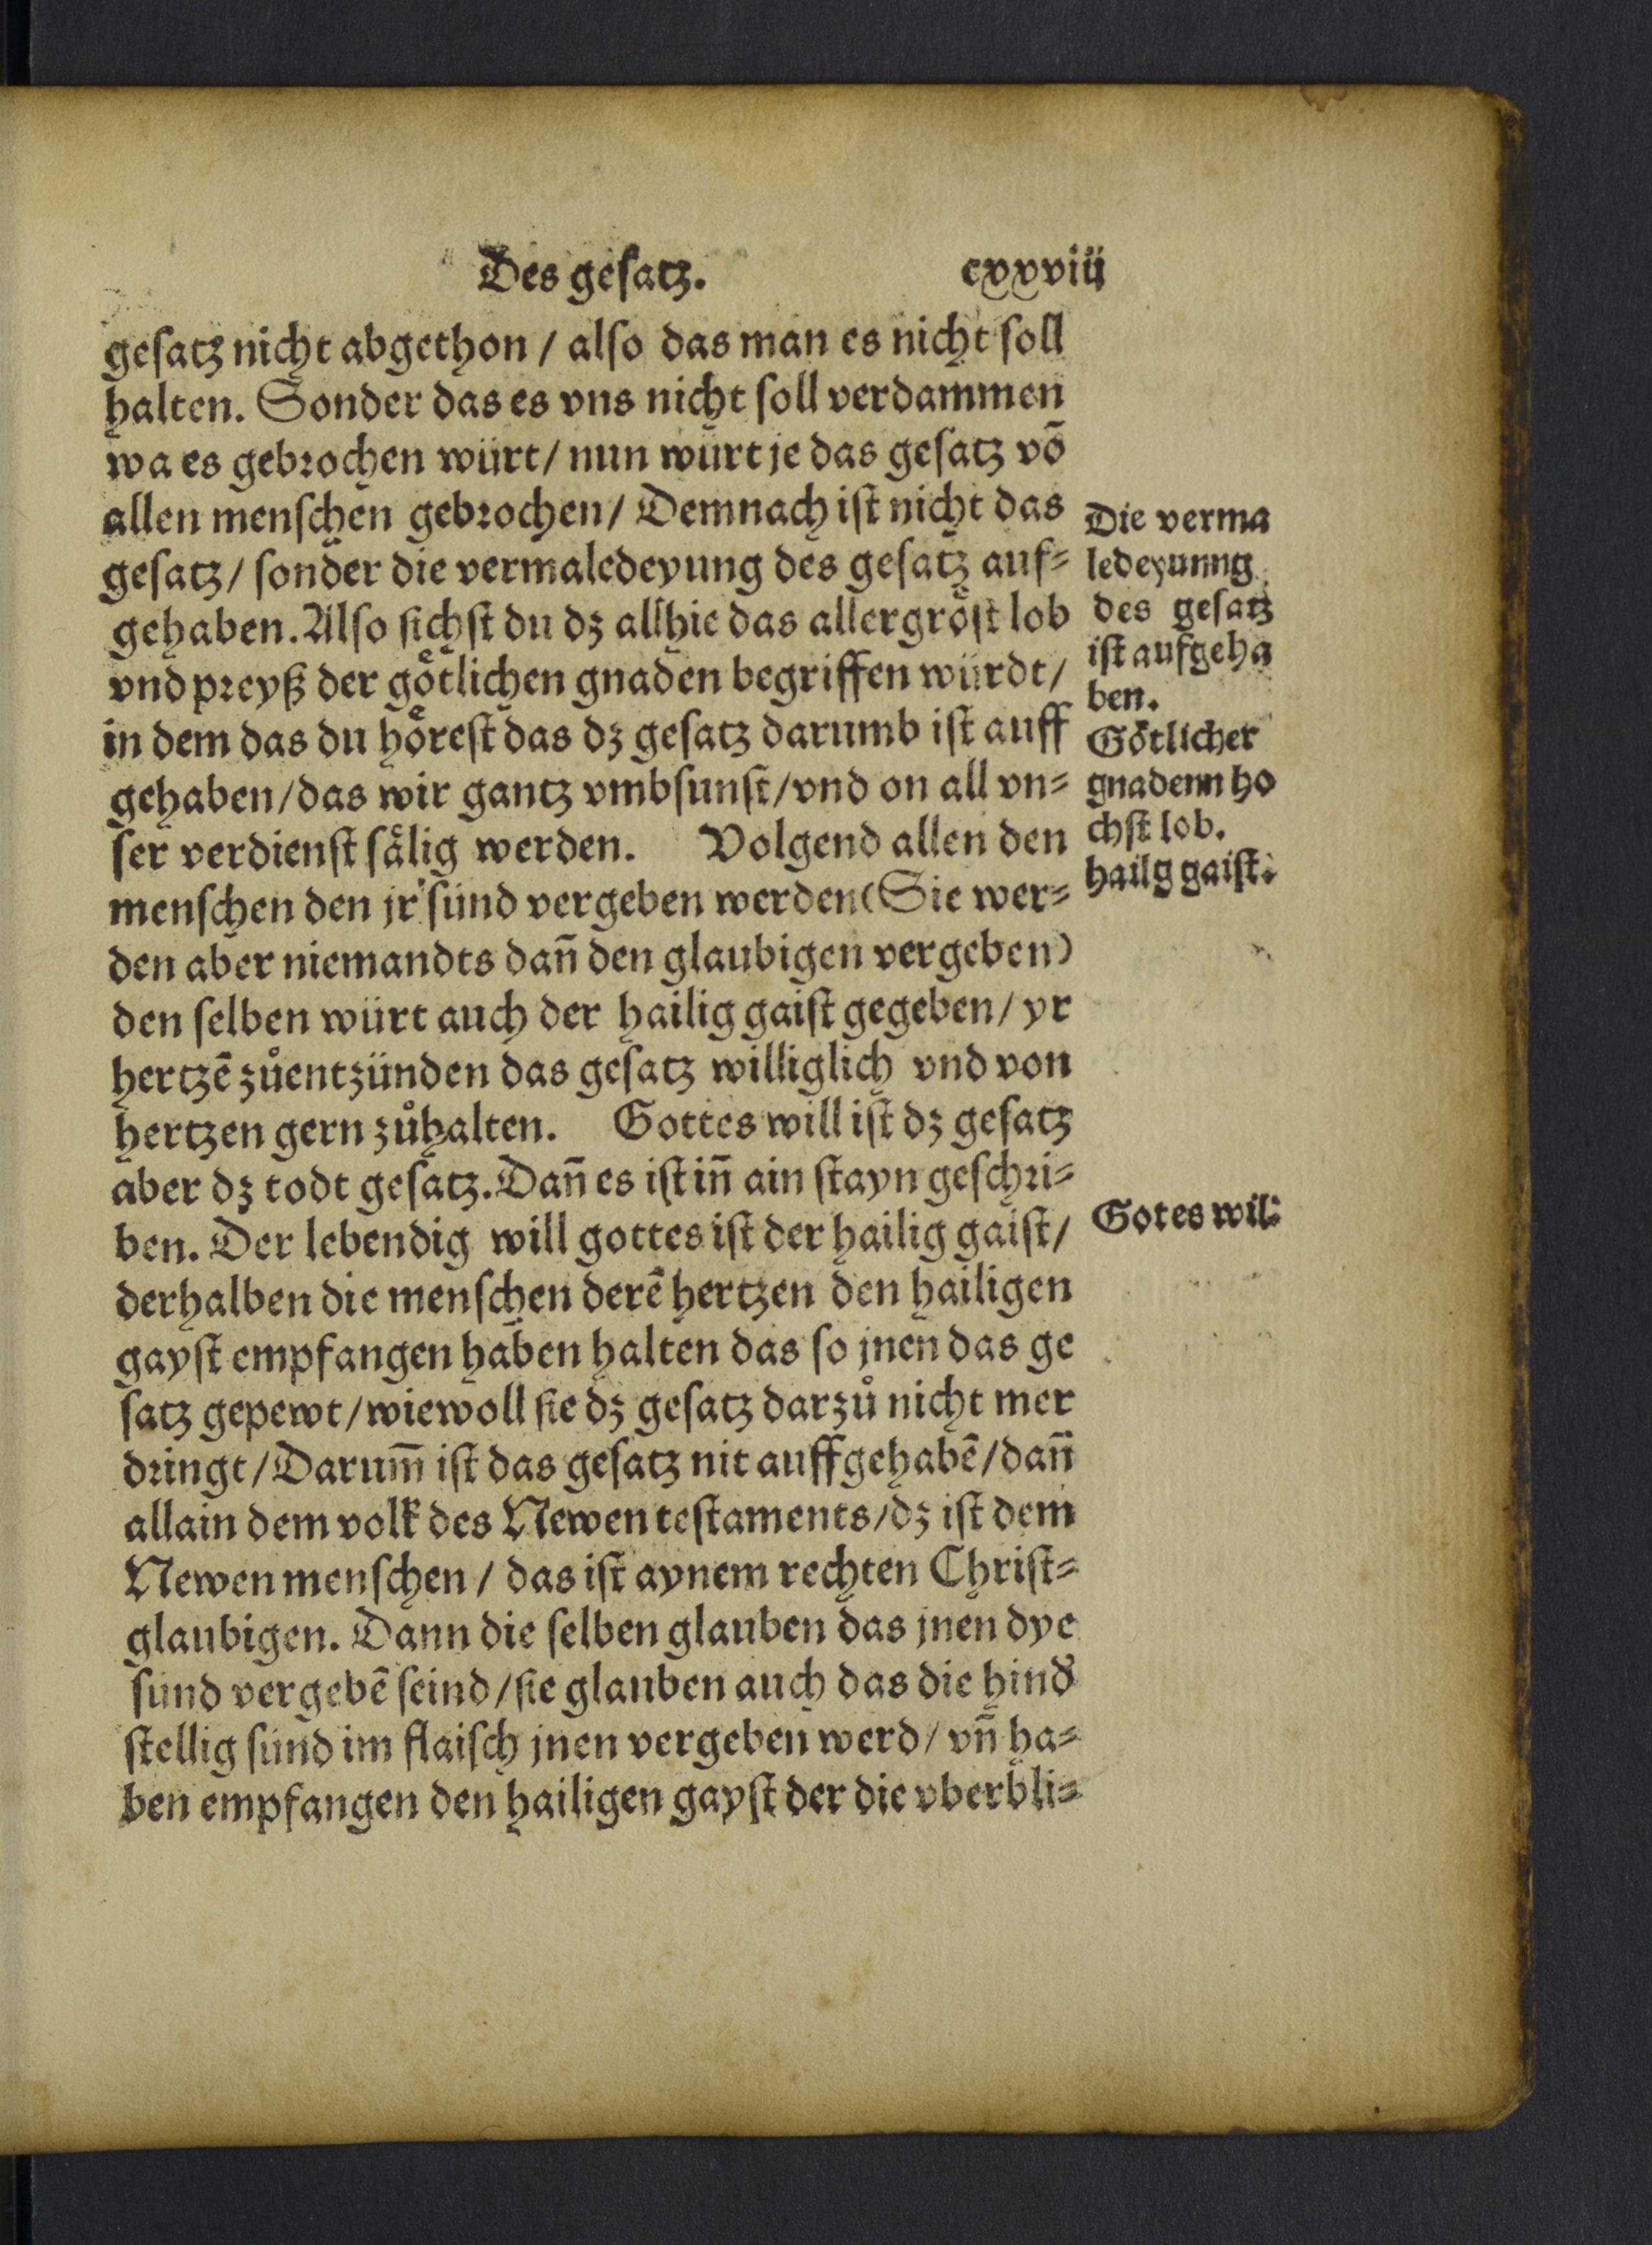 Des gesatz. cxxviij
gesatz nicht abgethon / also das man es nicht soll
halten. Sonder das es vns nicht soll verdammen
wa es gebrochen würt / nun würt je das gesatz võ
allen menschen gebrochen / Demnach ist nicht das
gesatz / sonder die vermaledeyung des gesatz auf-
gehaben. Also sichst du dz allhie das allergröst lob
vnd preyß der götlichen gnaden begriffen würdt /
in dem das du hörest das dz gesatz darumb ist auff
gehaben / das wir gantz vmbsunst / vnd on all vn-
ser verdienst sälig werden. Volgend allen den
menschen den jr sünd vergeben werden (Sie wer-
den aber niemandts dañ den glaubigen vergeben)
den selben würt auch der hailig gaist gegeben / yr
hertzẽ zůentzünden das gesatz williglich vnd von
hertzen gern zůhalten. Gottes will ist dz gesatz
aber dz todt gesatz. Dañ es ist iñ ain stayn geschri-
ben. Der lebendig will gottes ist der hailig gaist /
derhalben die menschen derẽ hertzen den hailigen
gayst empfangen haben halten das so jnen das ge
satz gepewt / wiewoll sie dz gesatz darzů nicht mer
dringt / Darum̃ ist das gesatz nit auffgehabẽ / dañ
allain dem volk des Newen testaments / dz ist dem
Newen menschen / das ist aynem rechten Christ-
glaubigen. Dann die selben glauben das jnen dye
sünd vergebẽ seind / sie glauben auch das die hind'
stellig sünd im flaisch jnen vergeben werd / vñ ha-
ben empfangen den hailigen gayst der die vberbli-
Die verma
ledeyunng
des gesatz
ist aufgeha
ben.
Götlicher
gnadenn hö
chst lob.
hailg gaist.
Gotes wil.